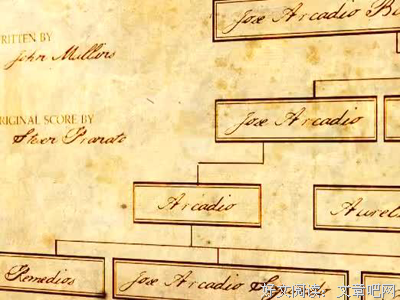 RITTEN BY
John Mullins
RIGINAL SCORE BY
Jose Arcadio Bu
Jose Arcadio
Arcadio
Aurel
Remedios
Jose Arcadio
好文阅读：文章吧网